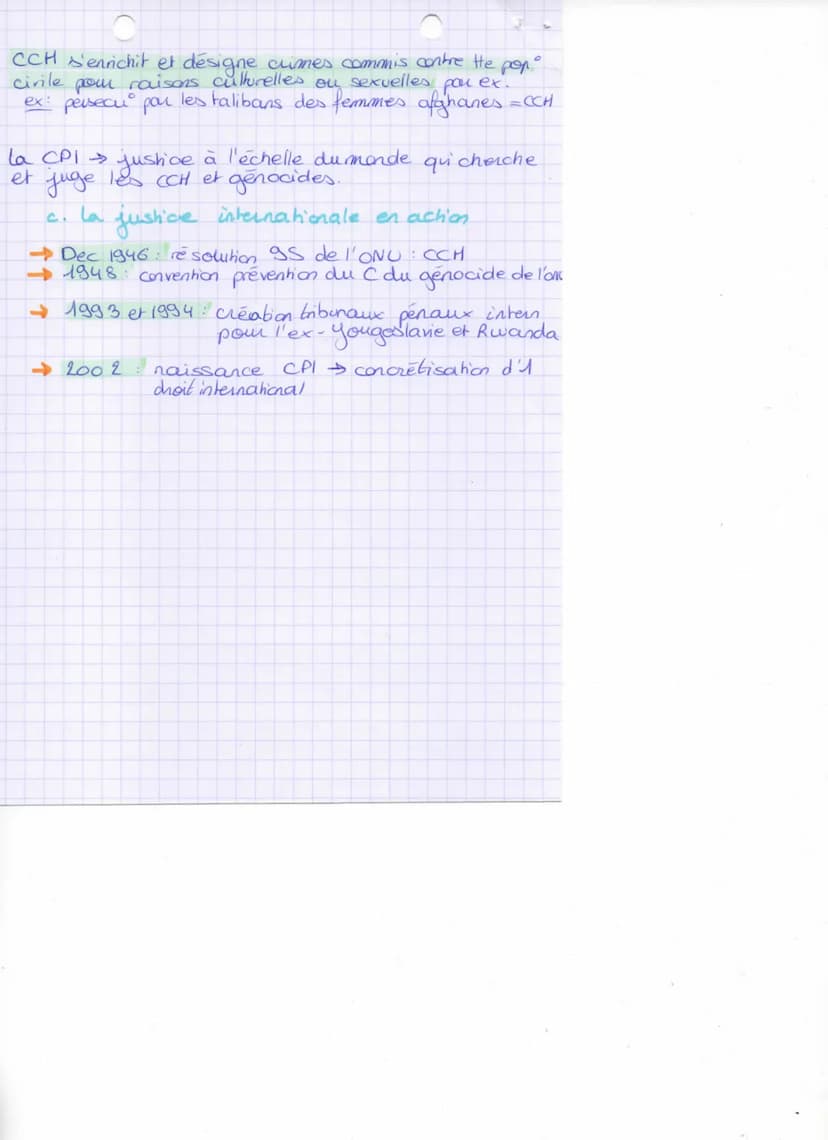 CCH s'enrichit et désigne crimes commis contre tte pop°
civile pour raisons culturelles ou sexuelles par ex.
ex: persecu° par les talibans des femmes afghanes = CCH
la CPI → justice à l'échelle du monde qui cherche
et juge les CCH et génocides.
c. la justice internationale en action
→ Dec 1946 : résolution 95 de l'ONU : CCH
→ 1948 : convention prévention du C du génocide de l'onu
→ 1993 et 1994 : création tribunaux pénaux intern
pour l'ex-Yougoslavie et Rwanda
→ 2002 : naissance CPI → concrétisation d'1
droit international